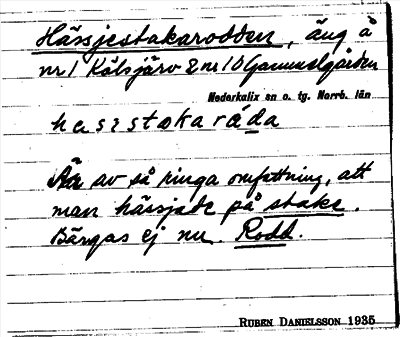 Hässjestakarodden, äng å
nr 1 Kälsjärv 2 nr 10 Gammelgården
Nederkalix sn o. tg. Norrb. län
hesistakaråda
Är av så ringa omfattning, att
man hässjade på stake.
Bärgas ej nu. Rodd.
RUBEN DANIELSSON 1935